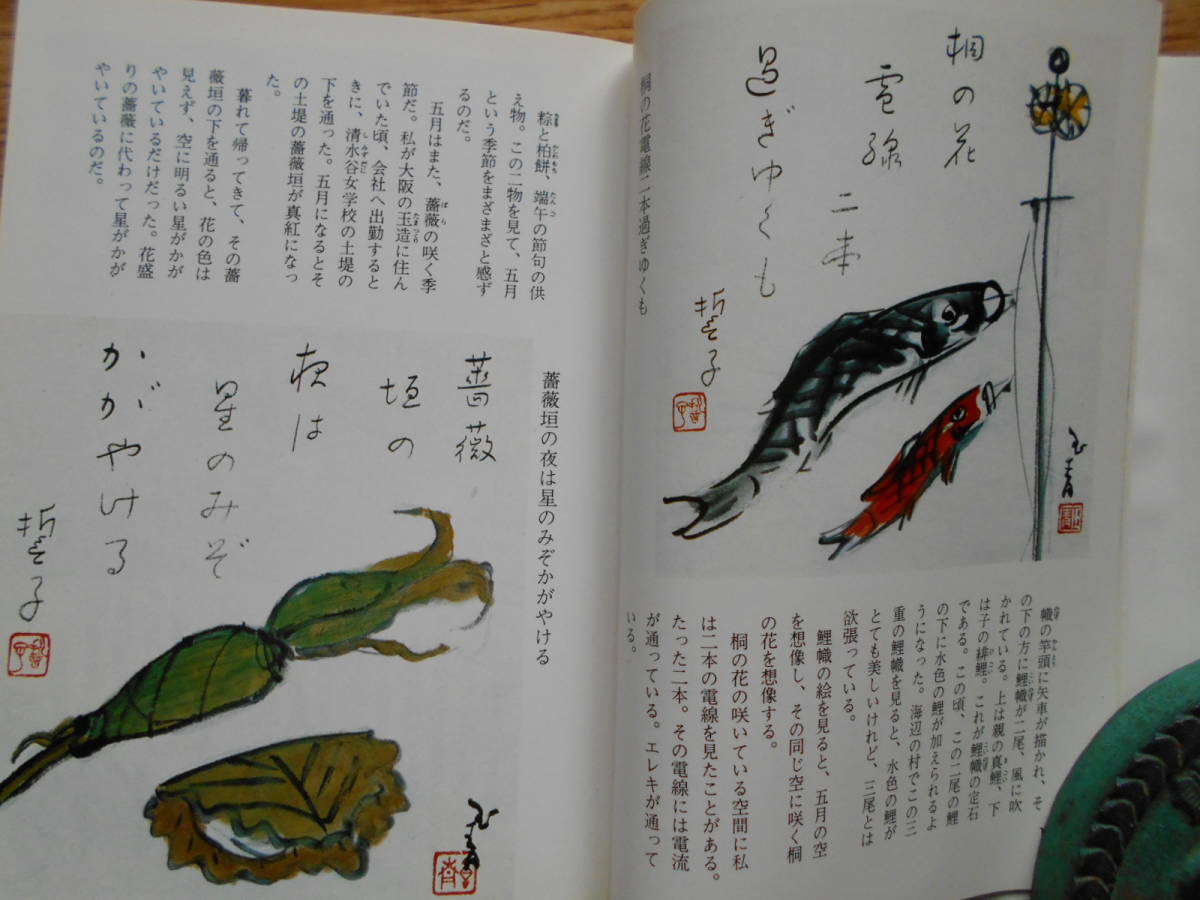 桐の花
電線
二本
過ぎゆくも
哲子
桐の花電線二本過ぎゆくも
幟の竿頭に矢車が描かれ、そ
の下の方に鯉幟が二尾、風に吹
かれている。上は親の真鯉、下
は子の緋鯉。これが鯉幟の定石
である。この頃、この二尾の鯉
の下に水色の鯉が加えられるよ
うになった。海辺の村でこの三
重の鯉幟を見ると、水色の鯉が
とても美しいけれど、三尾とは
欲張っている。
鯉幟の絵を見ると、五月の空
を想像し、その同じ空に咲く桐
の花を想像する。
桐の花の咲いている空間に私
は二本の電線を見たことがある。
たった二本。その電線には電流
が通っている。エレキが通って
いる。
粽と柏餅、端午の節句の供
え物。この二物を見て、五月
という季節をまざまざと感ず
るのだ。
五月はまた、薔薇の咲く季
節だ。私が大阪の玉造に住ん
でいた頃、会社へ出勤すると
きに、清水谷女学校の土堤の
下を通った。五月になるとそ
の土堤の薔薇垣が真紅になっ
た。
暮れて帰ってきて、その薔
薇垣の下を通ると、花の色は
見えず、空に明るい星がかが
やいているだけだった。花盛
りの薔薇に代わって星がかが
やいているのだ。
薔薇垣の夜は星のみぞかがやける
薔薇
垣の
夜は
星のみぞ
かがやける
哲子